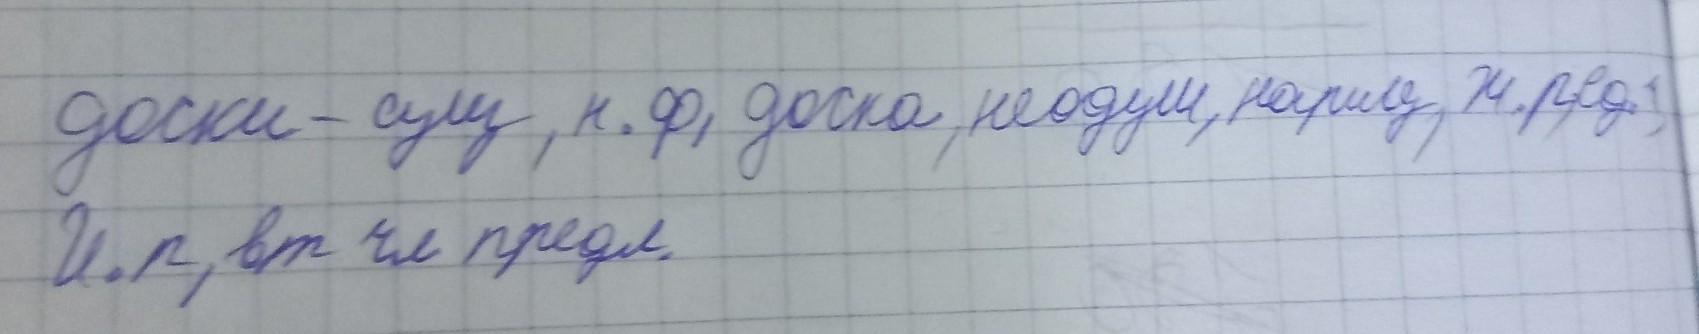 доски – сущ, н. ф, доска, неодуш, нариц, ж. р, ед. ч,
И. п, вт чл предл.